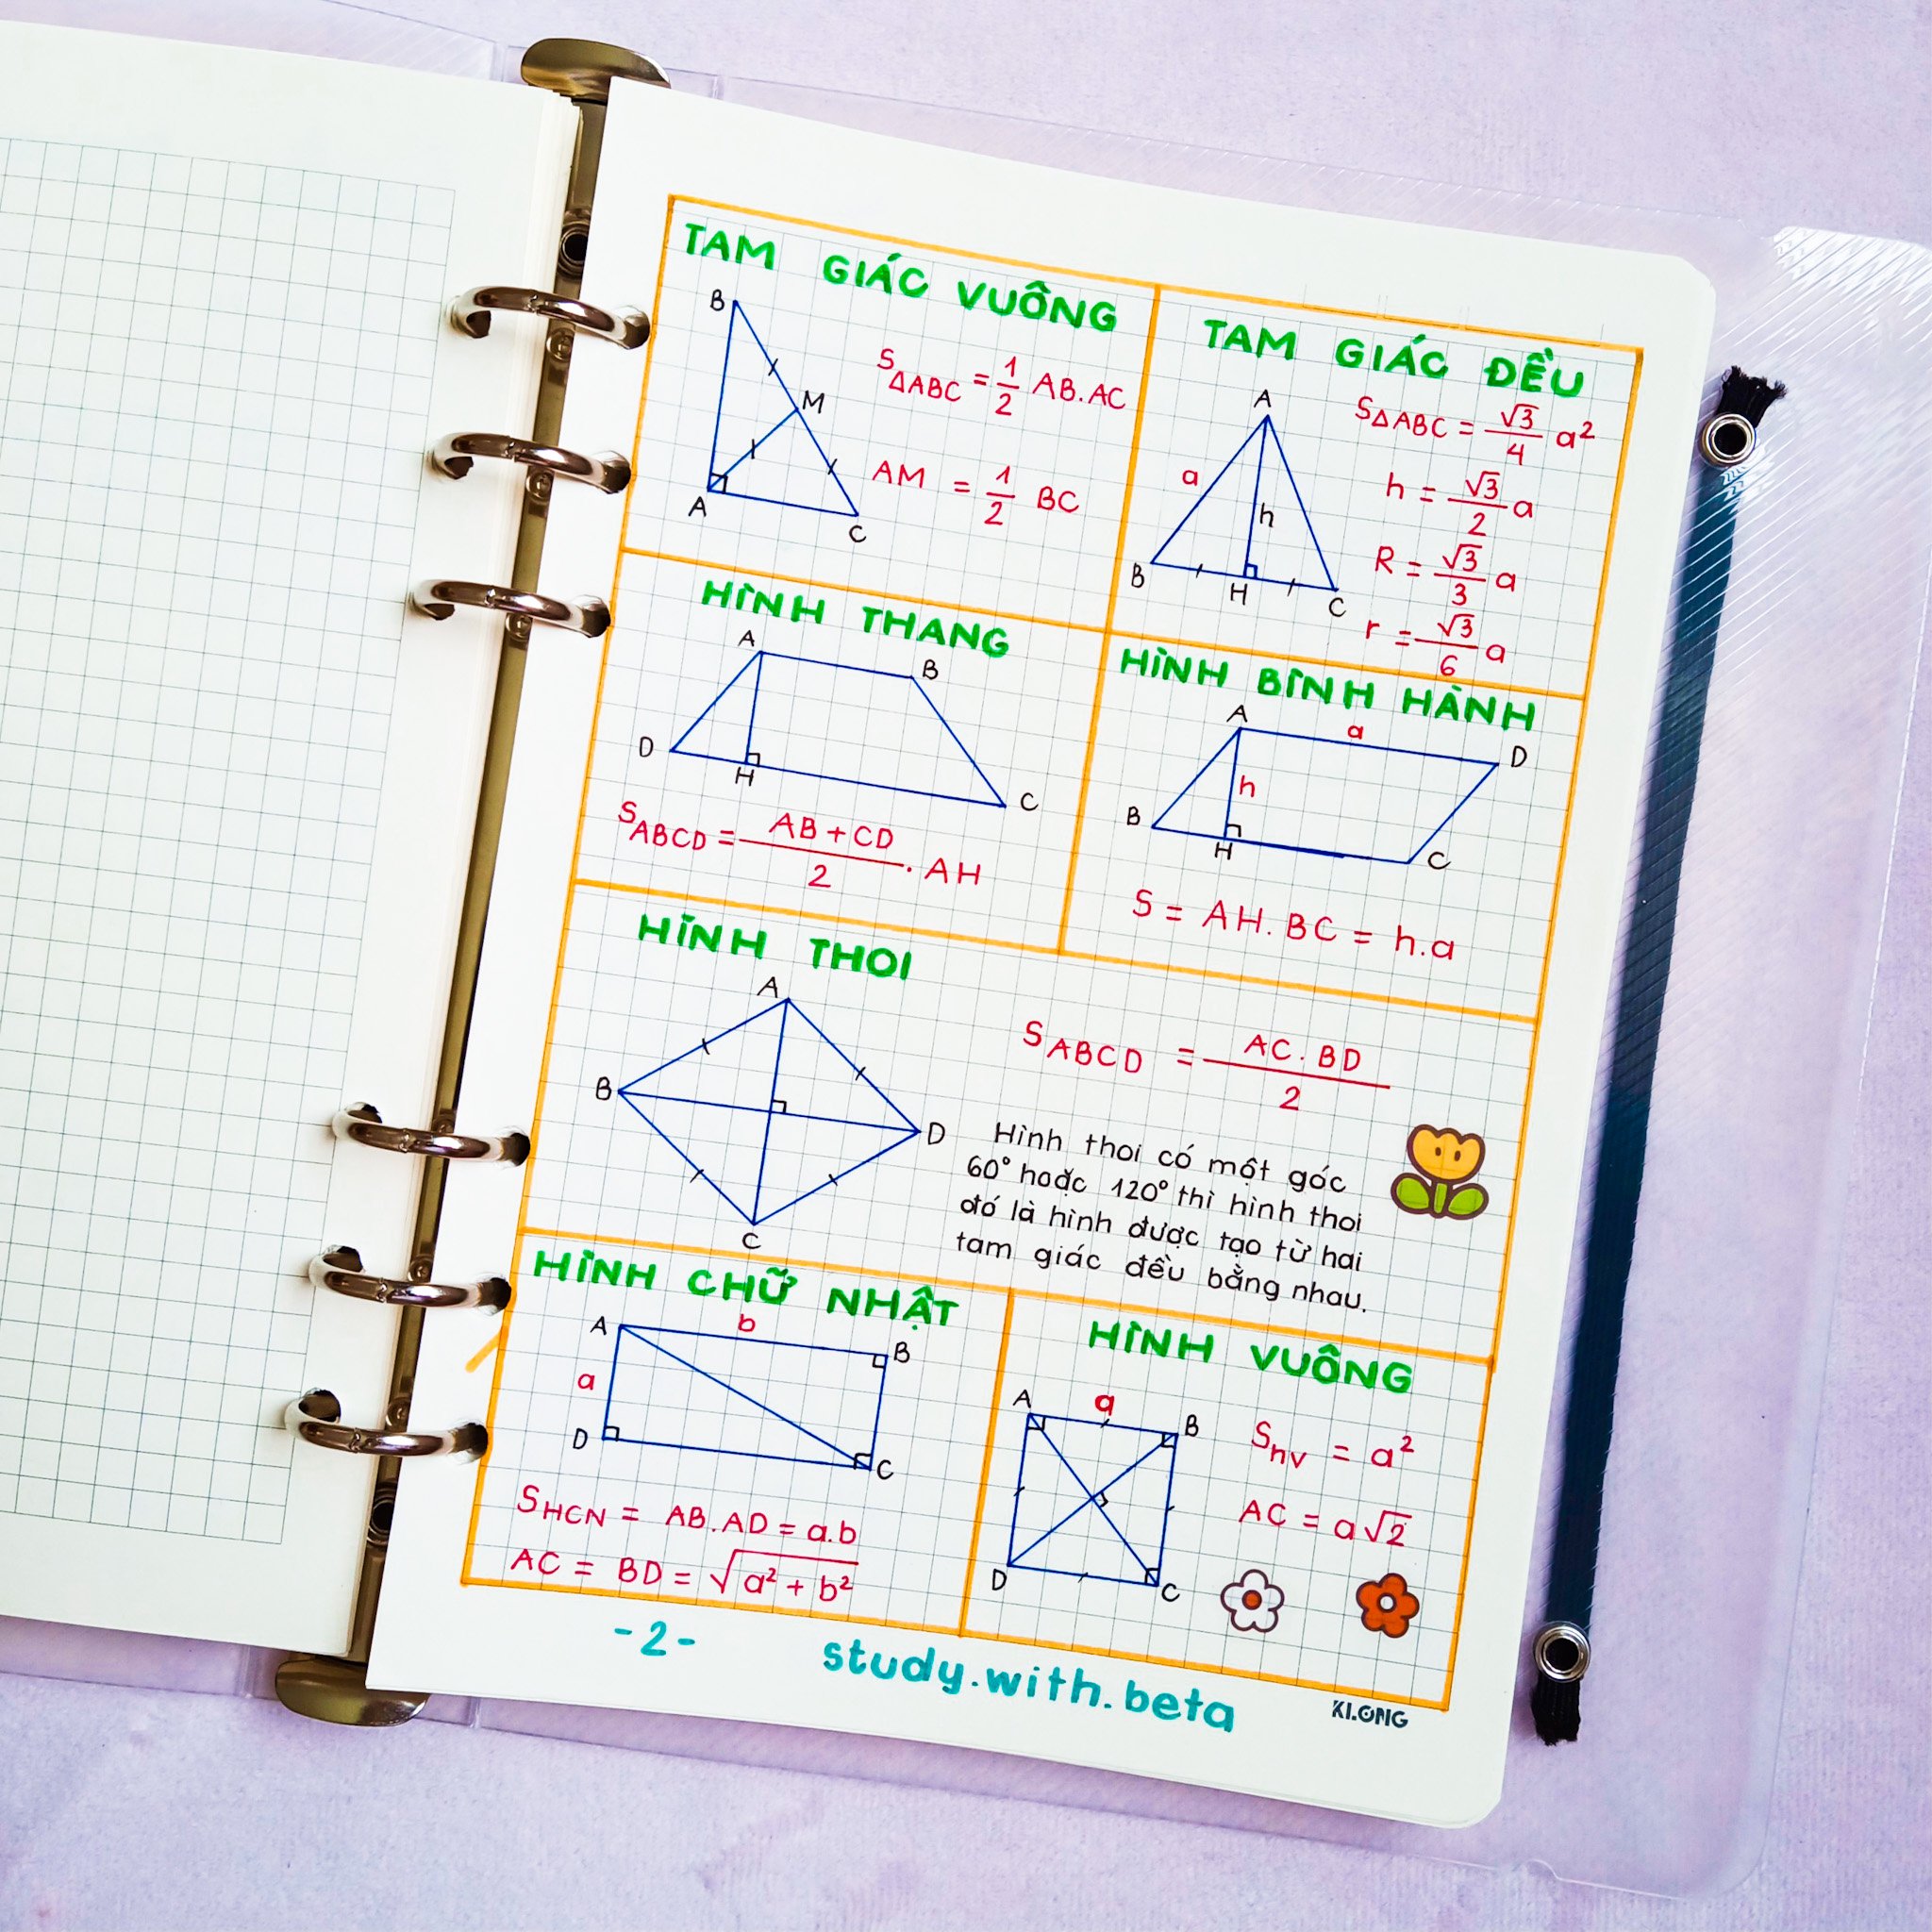 TAM GIÁC VUÔNG
B
M
A
C
S△ABC = 1/2 AB.AC
AM = 1/2 BC
TAM GIÁC ĐỀU
A
a
h
B
H
C
S△ABC = √3/4 a²
h = √3/2 a
R = √3/3 a
r = √3/6 a
HÌNH THANG
A
B
D
H
C
S ABCD = AB + CD / 2 . AH
HÌNH BÌNH HÀNH
A
a
D
h
B
H
C
S = AH.BC = h.a
HÌNH THOI
A
B
D
C
S ABCD = AC.BD / 2
Hình thoi có một góc
60° hoặc 120° thì hình thoi
đó là hình được tạo từ hai
tam giác đều bằng nhau.
HÌNH CHỮ NHẬT
A
b
B
a
D
C
S HCN = AB.AD = a.b
AC = BD = √a² + b²
HÌNH VUÔNG
A
a
B
D
C
Shv = a²
AC = a√2
-2-
study.with.beta
KLONG